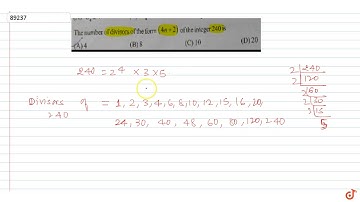 89237
The number of divisors of the form (4n+2) of the integer 240 is
(A) 4 (B) 8 (C) 10 (D) 20
240 = 2⁴ × 3 × 5
2 | 240
2 | 120
2 | 60
2 | 30
3 | 15
5
Divisors of 240 = 1, 2, 3, 4, 6, 8, 10, 12, 15, 16, 20,
24, 30, 40, 48, 60, 80, 120, 240